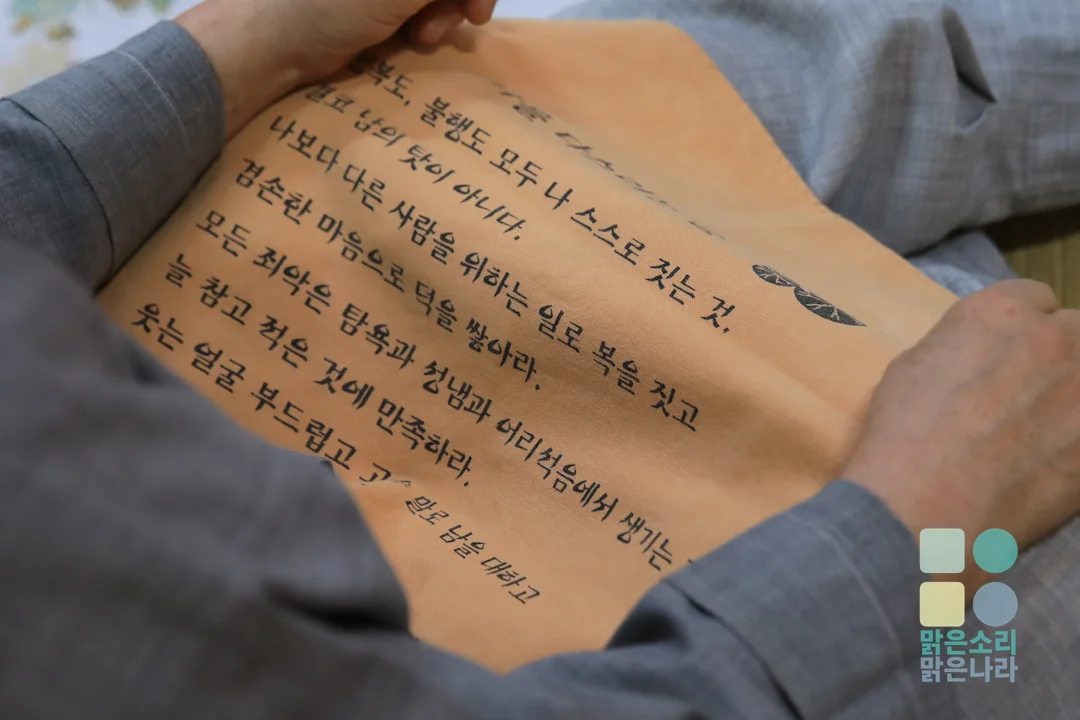 복도, 불행도 모두 나 스스로 짓는 것,
남의 탓이 아니다.
나보다 다른 사람을 위하는 일로 복을 짓고
겸손한 마음으로 덕을 쌓아라.
모든 죄악은 탐욕과 성냄과 어리석음에서 생기는
늘 참고 적은 것에 만족하라.
웃는 얼굴 부드럽고
말로 남을 대하고
맑은소리
맑은나라